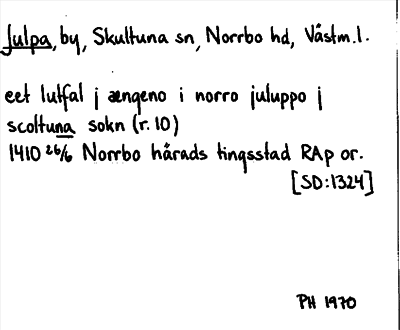 Julpa, by, Skultuna sn, Norrbo hd, Västm.l.
eet lutfal j ængeno i norro juluppo j
scoltuna sokn (r. 10)
1410 26/6 Norrbo härads tingsstad RAp or.
[SD:1324]
PH 1970